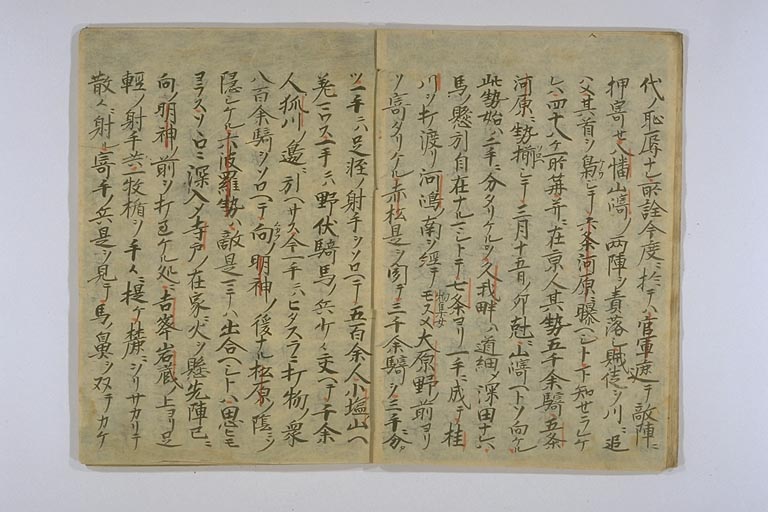 代ノ恥辱ナレ所詮今度ニ於テハ官軍遮テ敵陣ニ
押寄セ八幡山﨑ノ両陣ヲ責落シ賊徒ヲ川ニ追
ハメ其首ヲ梟シテ六条河原ニ曝ヘシト下知セラレケ
レハ四十八ケ所篝并ニ在京人其勢五千余騎五条
河原ニ勢揃シテ三月十五日ノ卯尅ニ山﨑ヘトソ向ケル
此勢始ハ二手ニ分タリケルヲ久我畔ハ道細ク深田ナレハ
馬ノ懸引自在ナルマシトテ七条ヨリ一手ニ成テ桂
川ヲ打渡リ河嶋ノ南ヲ經テ物集女モスメ大原野ノ前ヨリ
ソ寄タリケル赤松是ヲ聞テ三千余騎ヲ三手ニ分
ツ一手ニハ足軽ノ射手ヲソロヘテ五百余人小塩山ヘ
廻ラス一手ニハ野伏騎馬ノ兵少々交ヘテ千余
人狐川ノ邊ニ引ヘサス今一手ニハヒタスラ打物ノ衆
八百余騎ヲソロヘテ向ノ明神ノ後ナル松原ノ陰ニ
隠シケル六波羅勢ハ敵是マテハ出合ヘシトハ思ヒモ
ヨラスソヽロニ深入シ寺戸ノ在家ニ火ヲ懸先陣已ニ
向ノ明神ノ前ヲ打過ケル処ニ吉峯岩蔵ノ上ヨリ足
輕ノ射手共一枚楯ヲ手々ニ提ケ麓ニヲリサカリテ
散々ニ射ル寄手ノ兵是ヲ見テ馬ノ鼻ヲ双テカケ